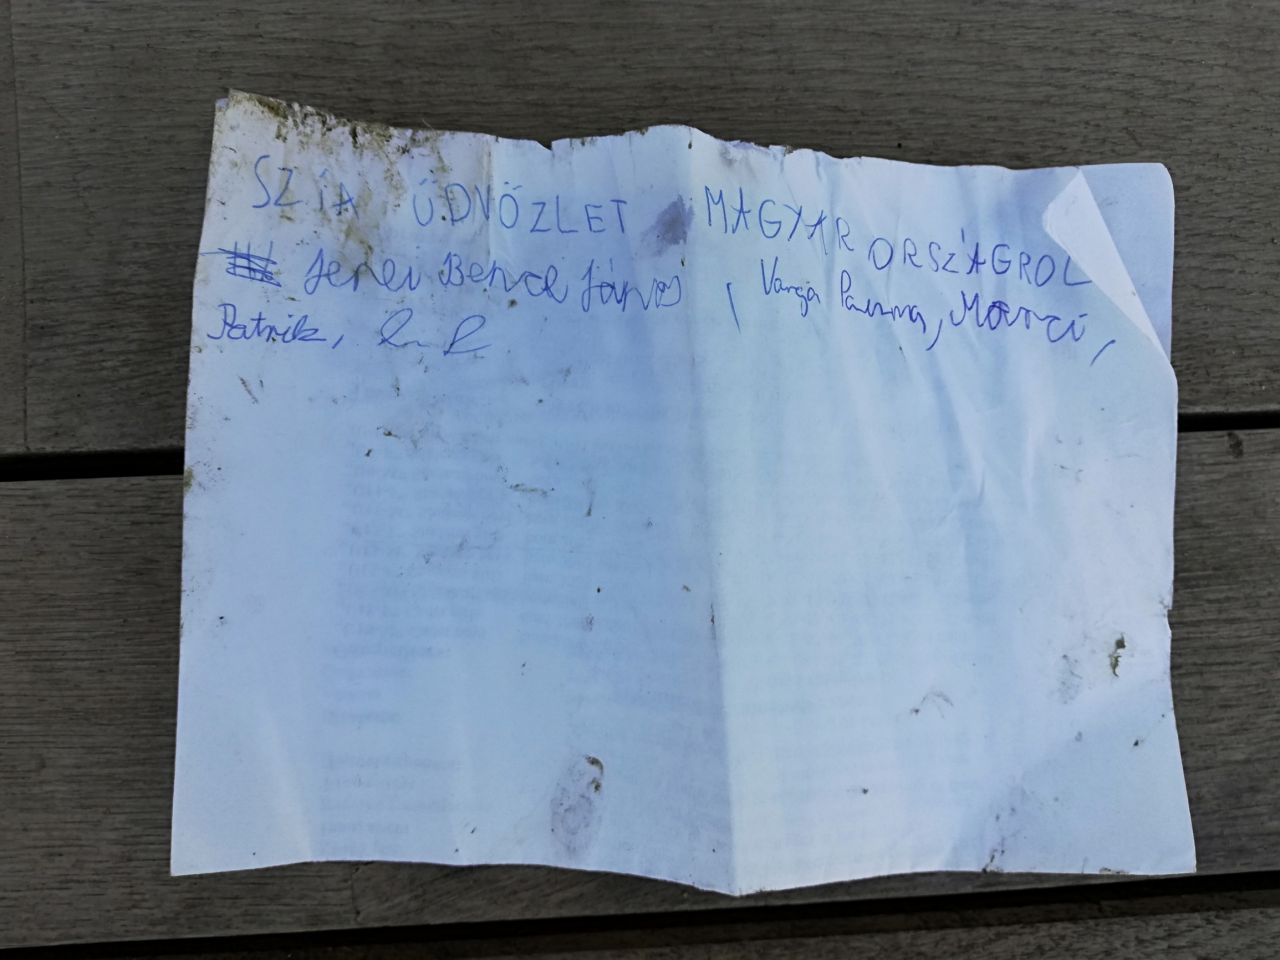 SZIA ÜDVÖZLET MAGYARORSZÁGROL
Jenei Bence János, Varga Panna, Marci,
Patrik,